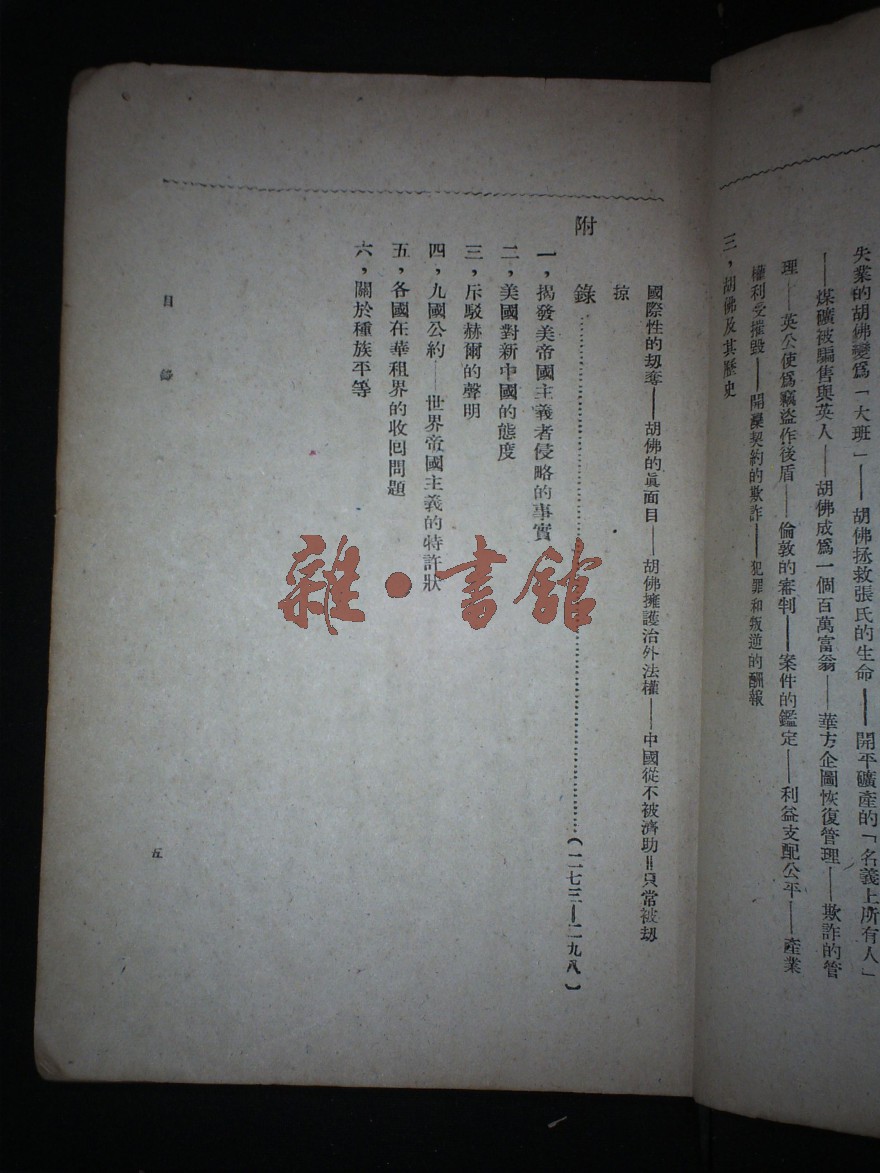 三，胡佛及其歷史
失業的胡佛變爲「大班」——胡佛拯救張氏的生命——開平礦產的「名義上所有人」
——煤礦被騙售與英人——胡佛成爲一個百萬富翁——華方企圖恢復管理——欺詐的管
理——英公使爲竊盜作後盾——倫敦的審判——案件的鑑定——利益支配公平——產業
權利受摧毀——開灤契約的欺詐——犯罪和叛逆的酬報
國際性的劫奪——胡佛的眞面目——胡佛擁護治外法權——中國從不被濟助＝只常被劫
掠
附 錄……………………………………(二七三—二九八)
一，揭發美帝國主義者侵略的事實
二，美國對新中國的態度
三，斥駁赫爾的聲明
四，九國公約——世界帝國主義的特許狀
五，各國在華租界的收回問題
六，關於種族平等
目 錄
五
雜·書館